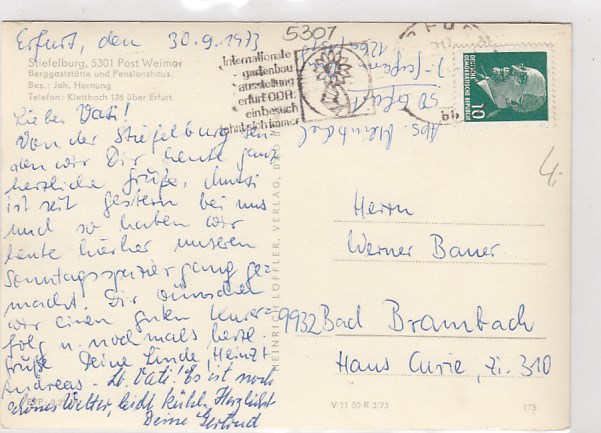 5301
Erfurt, den 30.9.1973
Stiefelburg, 5301 Post Weimar
Berggaststätte und Pensionshaus
Bes.: Joh. Hornung
Telefon: Klettbach 126 über Erfurt
Internationale
gartenbau
ausstellung
erfurt DDR.
ein besuch
lohnt sich immer
DEUTSCHE
DEMOKRATISCHE REPUBLIK
10
Abs. Meinhardt
50 Erfurt
Lieber Vati!
Von der Stiefelburg sen-
den wir Dir heute ganz
herzliche Grüße, Mutti
ist seit gestern bei uns
und so haben wir
heute hierher unseren
Sonntagsspaziergang ge-
macht. Dir wünschen
wir einen guten Kurer-
folg u. nochmals herzl.
Grüße Deine Linde, Heinz u.
Andreas - Lb. Vati! Es ist noch
schönes Wetter, leicht kühl. Herzlichst
Deine Gertrud
HEINRICH LÖFFLER, VERLAG,
4.
Herrn
Werner Bauer
9932 Bad Brambach
Haus Curie, Zi. 310
V 11 50 R 3/73
175